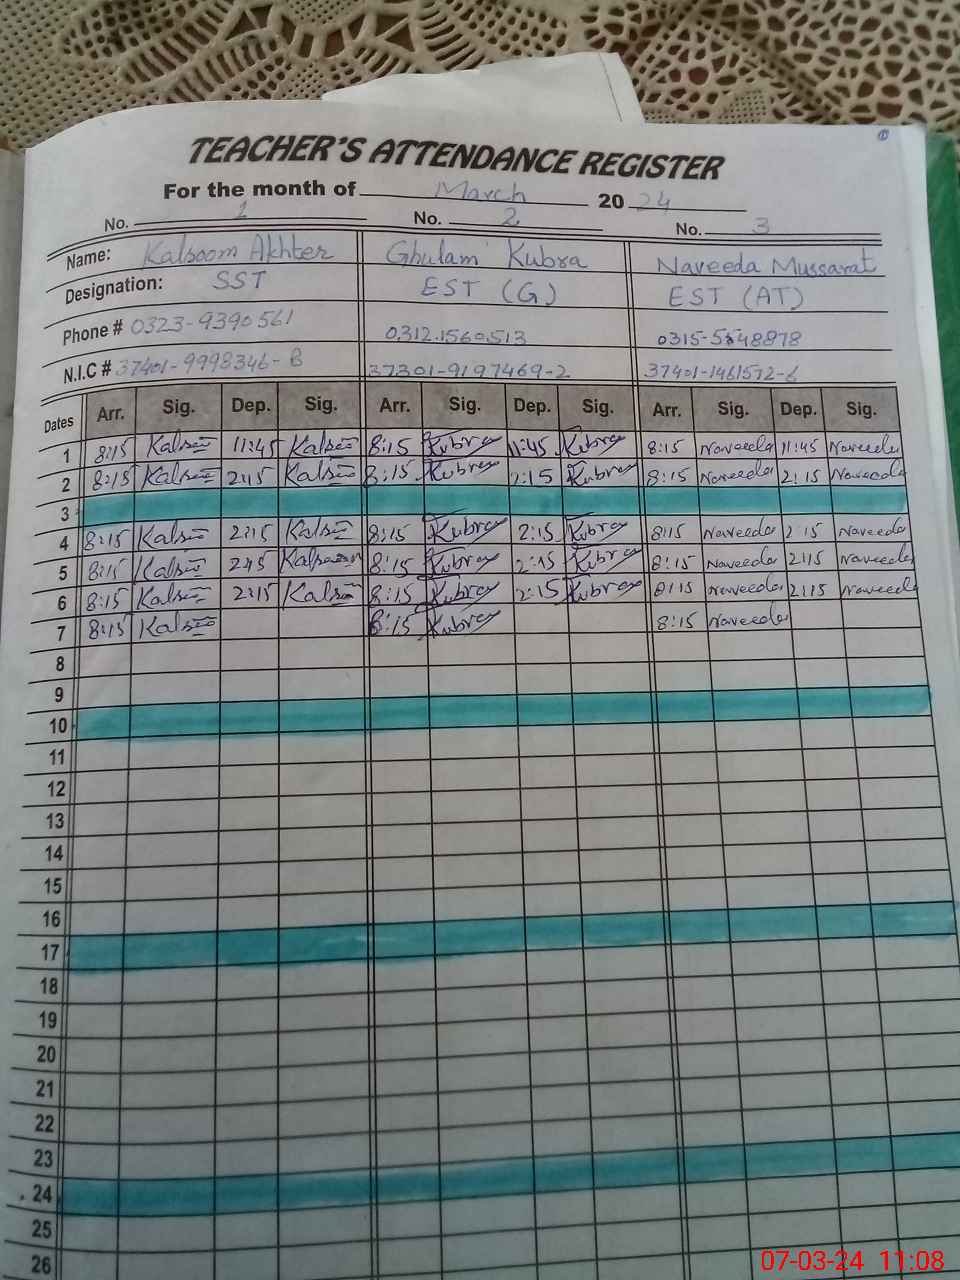 ①
TEACHER'S ATTENDANCE REGISTER
For the month of March 2024
No. 1 No. 2 No. 3
Name: Kalsoom Akhter Ghulam Kubra Naveeda Mussarat
Designation: SST EST (G) EST (AT)
Phone # 0323-9390561 0312.1560513 0315-5548878
N.I.C # 37401-9998346-8 37301-9197469-2 37401-1461572-6
Dates Arr. Sig. Dep. Sig. Arr. Sig. Dep. Sig. Arr. Sig. Dep. Sig.
1 8:15 Kalsoom 11:45 Kalsoom 8:15 Kubra 11:45 Kubra 8:15 Naveeda 11:45 Naveeda
2 8:15 Kalsoom 2:15 Kalsoom 8:15 Kubra 2:15 Kubra 8:15 Naveeda 2:15 Naveeda
3
4 8:15 Kalsoom 2:15 Kalsoom 8:15 Kubra 2:15 Kubra 8:15 Naveeda 2:15 Naveeda
5 8:15 Kalsoom 2:15 Kalsoom 8:15 Kubra 2:15 Kubra 8:15 Naveeda 2:15 Naveeda
6 8:15 Kalsoom 2:15 Kalsoom 8:15 Kubra 2:15 Kubra 8:15 Naveeda 2:15 Naveeda
7 8:15 Kalsoom 8:15 Kubra 8:15 Naveeda
8
9
10
11
12
13
14
15
16
17
18
19
20
21
22
23
24
25
26
07-03-24 11:08